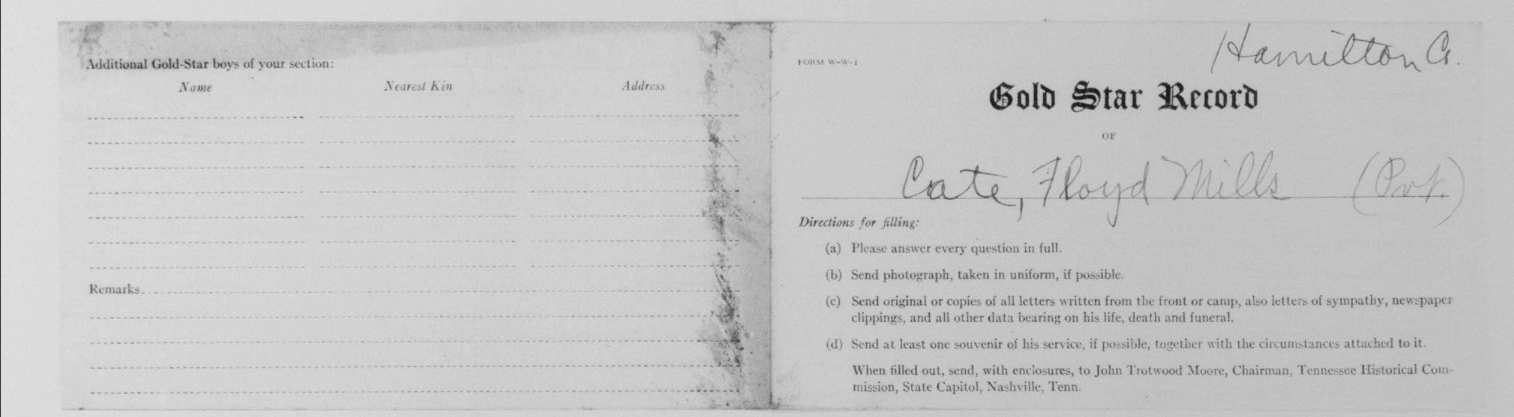 Additional Gold-Star boys of your section:
Name Nearest Kin Address
Remarks
Hamilton Co.
FORM W-W-1
Gold Star Record
OF
Cate, Floyd Mills (Pvt.)
Directions for filling:
(a) Please answer every question in full.
(b) Send photograph, taken in uniform, if possible.
(c) Send original or copies of all letters written from the front or camp, also letters of sympathy, newspaper
clippings, and all other data bearing on his life, death and funeral.
(d) Send at least one souvenir of his service, if possible, together with the circumstances attached to it.
When filled out, send, with enclosures, to John Trotwood Moore, Chairman, Tennessee Historical Com-
mission, State Capitol, Nashville, Tenn.